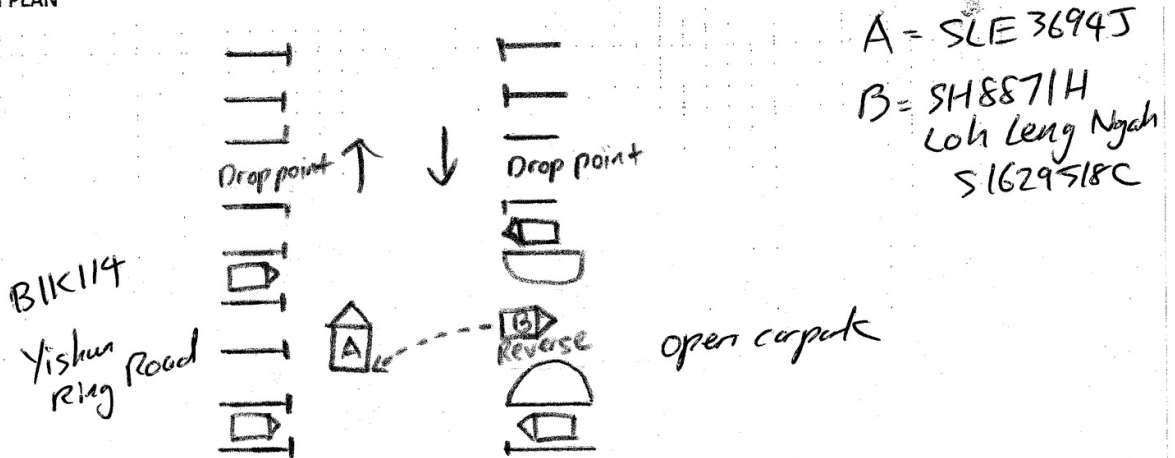 PLAN
A = SLE 3694J
B = SH8871H
Loh Leng Ngah
S1629518C
Drop point
Drop point
BLK114
Yishun
Ring Road
A
B
Reverse
open carpark